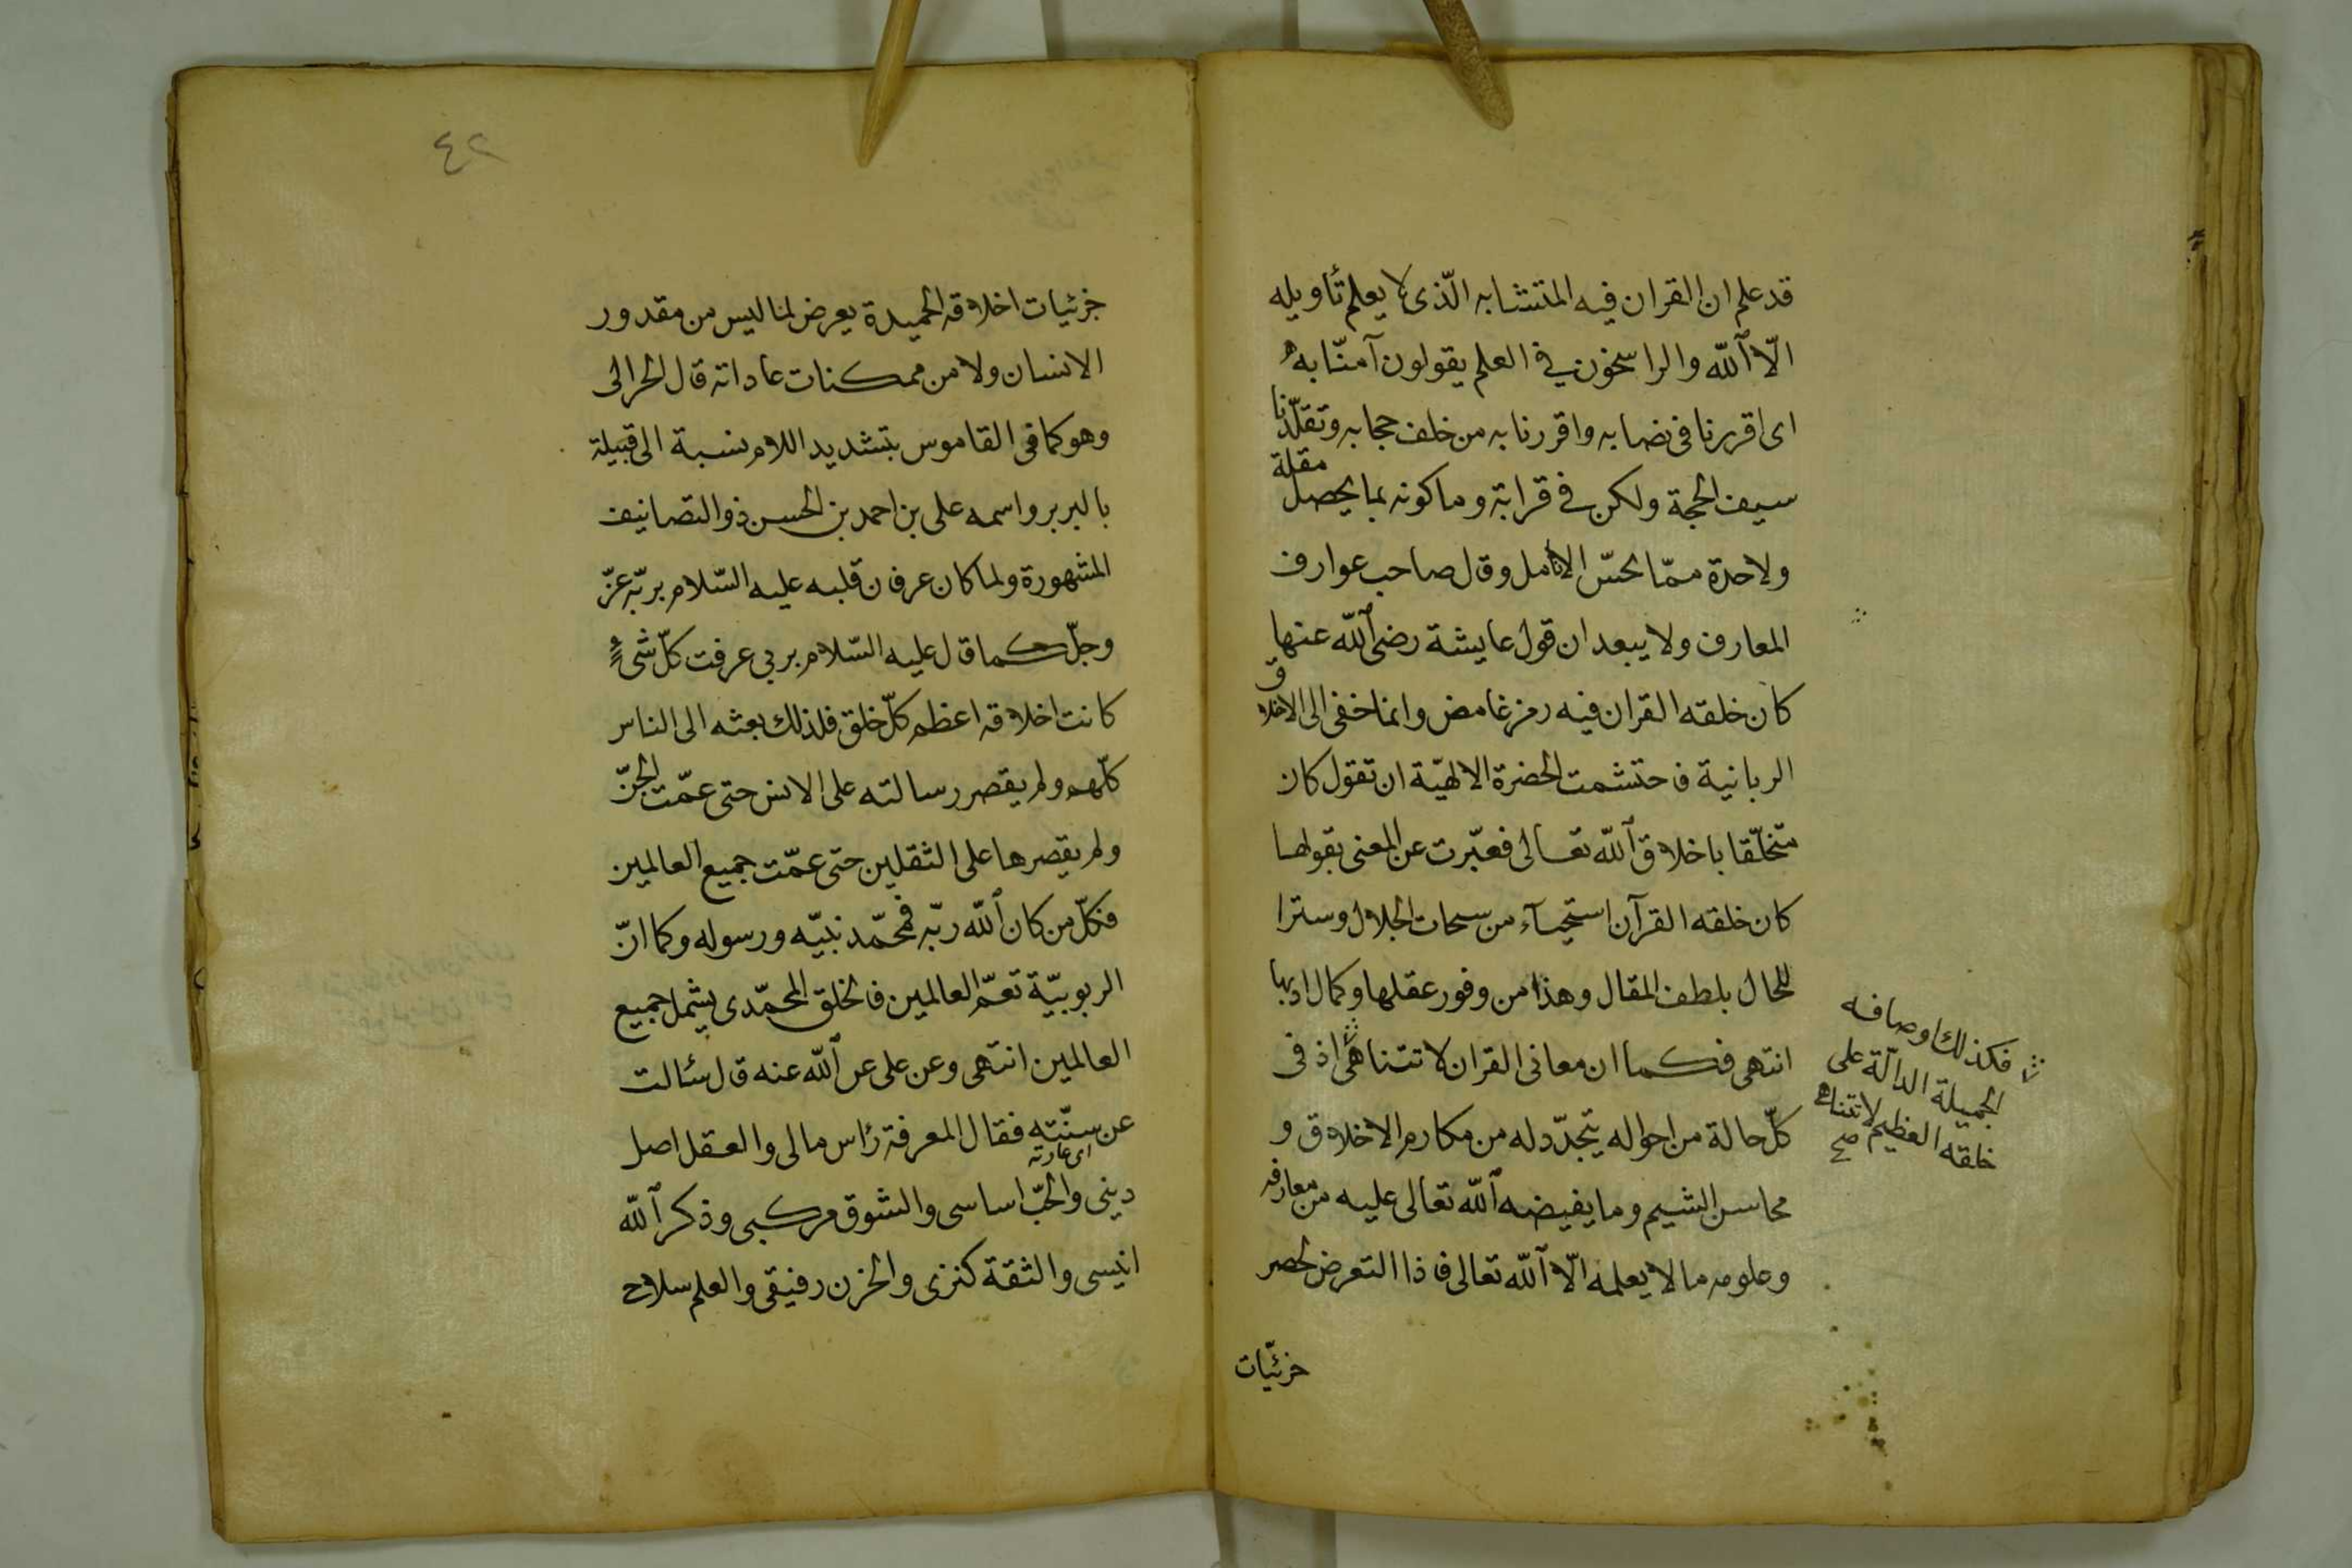 قد علم ان القران فيه المتشابه الّذى لا يعلم تأويله
الّا الله والراسخون فى العلم يقولون آمنّا به
اى اقررنا فى نصابه واقررنا به من خلف حجابه وتقلّدنا
سيف الحجة ولكن فى قرابة وما كونه بما يحصل مقلة
ولاحدة ممّا يحسّ الانامل وقال صاحب عوارف
المعارف ولا يبعد ان قول عايشة رضى الله عنها
كان خلقه القران فيه رمز غامض وانما خفى الى الاخلاق
الربانية فاحتشمت الحضرة الالهيّة ان تقول كان
متخلّقا باخلاق الله تعالى فعبّرت عن المعنى بقولها
كان خلقه القرآن استحياء من سبحات الجلال وسترا
للحال بلطف المقال وهذا من وفور عقلها وكمال ادبها
انتهى فكما ان معانى القران لا تتناهى اذ فى
كلّ حالة من احواله يتجدّد له من مكارم الاخلاق و
محاسن الشيم وما يفيضه الله تعالى عليه من معارفه
وعلومه ما لا يعلمه الّا الله تعالى فاذا التعرض لحصر
جزئيّات
فكذلك اوصافه
الجميلة الدالّة على
خلقه العظيم لا تتناهى
صح
٤٢
جزئيات اخلاقه الحميدة يعرض لما ليس من مقدور
الانسان ولا من ممكنات عاداته قال الحرالى
وهو كما فى القاموس بتشديد اللام نسبة الى قبيلة
بالبربر واسمه على بن احمد بن الحسن ذو التصانيف
المشهورة ولما كان عرفان قلبه عليه السّلام بربّه عزّ
وجلّ كما قال عليه السّلام بربى عرفت كلّ شىء
كانت اخلاقه اعظم كلّ خلق فلذلك بعثه الى الناس
كلّهم ولم يقصر رسالته على الانس حتى عمّت الجنّ
ولم يقصرها على الثقلين حتى عمّت جميع العالمين
فكلّ من كان الله ربّه فمحمّد نبيّه ورسوله وكما انّ
الربوبيّة تعمّ العالمين فالخلق المحمّدى يشمل جميع
العالمين انتهى وعن على عن الله عنه قال سئالت
عن سنّته فقال المعرفة رأس مالى والعقل اصل
اى عادته
دينى والحبّ اساسى والشوق مركبى وذكر الله
انيسى والثقة كنزى والحزن رفيقى والعلم سلاح